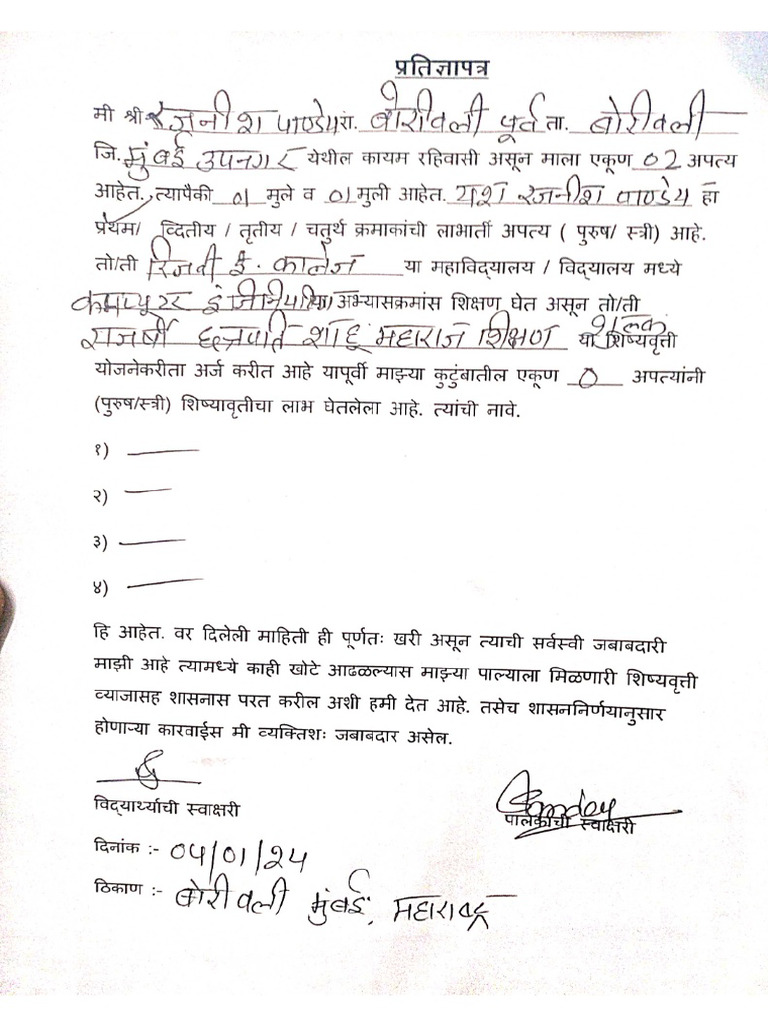 प्रतिज्ञापत्र
मी श्री रजनीश पाण्डेय रा. बोरीवली पूर्व ता. बोरीवली
जि. मुंबई उपनगर येथील कायम रहिवासी असून माला एकूण 02 अपत्य
आहेत. त्यापैकी 01 मुले व 01 मुली आहेत. यश रजनीश पाण्डेय हा
प्रथम/ व्दितीय / तृतीय / चतुर्थ क्रमाकांची लाभार्ती अपत्य ( पुरुष/ स्त्री) आहे.
तो/ती रिजवी ई. कालेज या महाविद्यालय / विद्यालय मध्ये
कमप्यूटर इंजिनियरिंग या अभ्यासक्रमांस शिक्षण घेत असून तो/ती
राजर्षी छत्रपति शाहू महाराज शिक्षण शुल्क या शिष्यवृत्ती
योजनेकरीता अर्ज करीत आहे यापूर्वी माझ्या कुटुंबातील एकूण 0 अपत्यांनी
(पुरुष/स्त्री) शिष्यावृतीचा लाभ घेतलेला आहे. त्यांची नावे.
१)
२)
३)
४)
हि आहेत. वर दिलेली माहिती ही पूर्णतः खरी असून त्याची सर्वस्वी जबाबदारी
माझी आहे त्यामध्ये काही खोटे आढळल्यास माझ्या पाल्याला मिळणारी शिष्यवृत्ती
व्याजासह शासनास परत करील अशी हमी देत आहे. तसेच शासननिर्णयानुसार
होणाऱ्या कारवाईस मी व्यक्तिशः जबाबदार असेल.
विद्यार्थ्याची स्वाक्षरी
पालकांची स्वाक्षरी
दिनांक :- 04/01/24
ठिकाण :- बोरीवली मुंबई, महाराष्ट्र